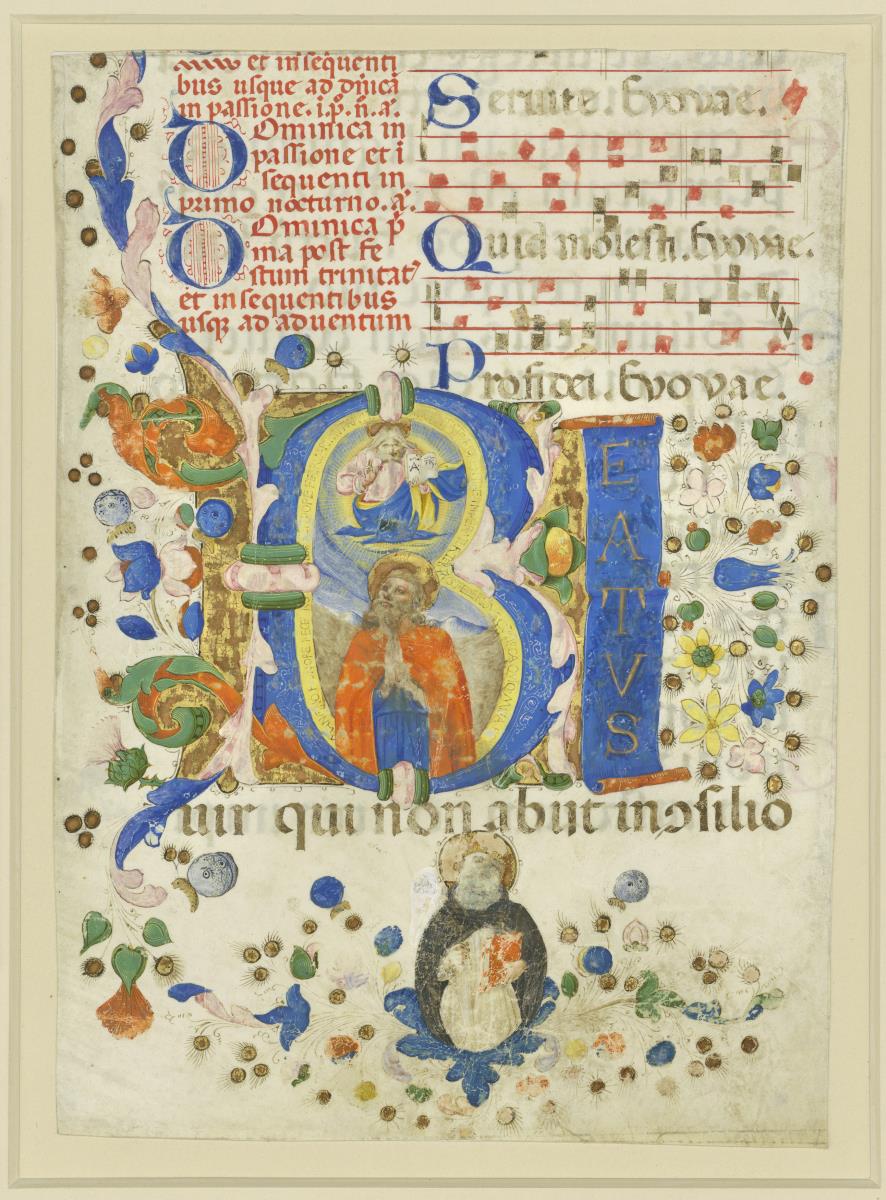 et insequenti
bus usque ad dñicã
in passione. i. p̃. ñ. ã.
Dominica in
passione et ĩ
sequenti in
primo nocturno. ã.
Dominica p̃
ma post fe
stum trinitat᾽
et in sequentibus
usq; ad aduentum
Seruite. Euouae.
Quid molesti. Euouae.
Proficei. Euouae.
B
EATVS
uir qui non abijt in ɔsilio